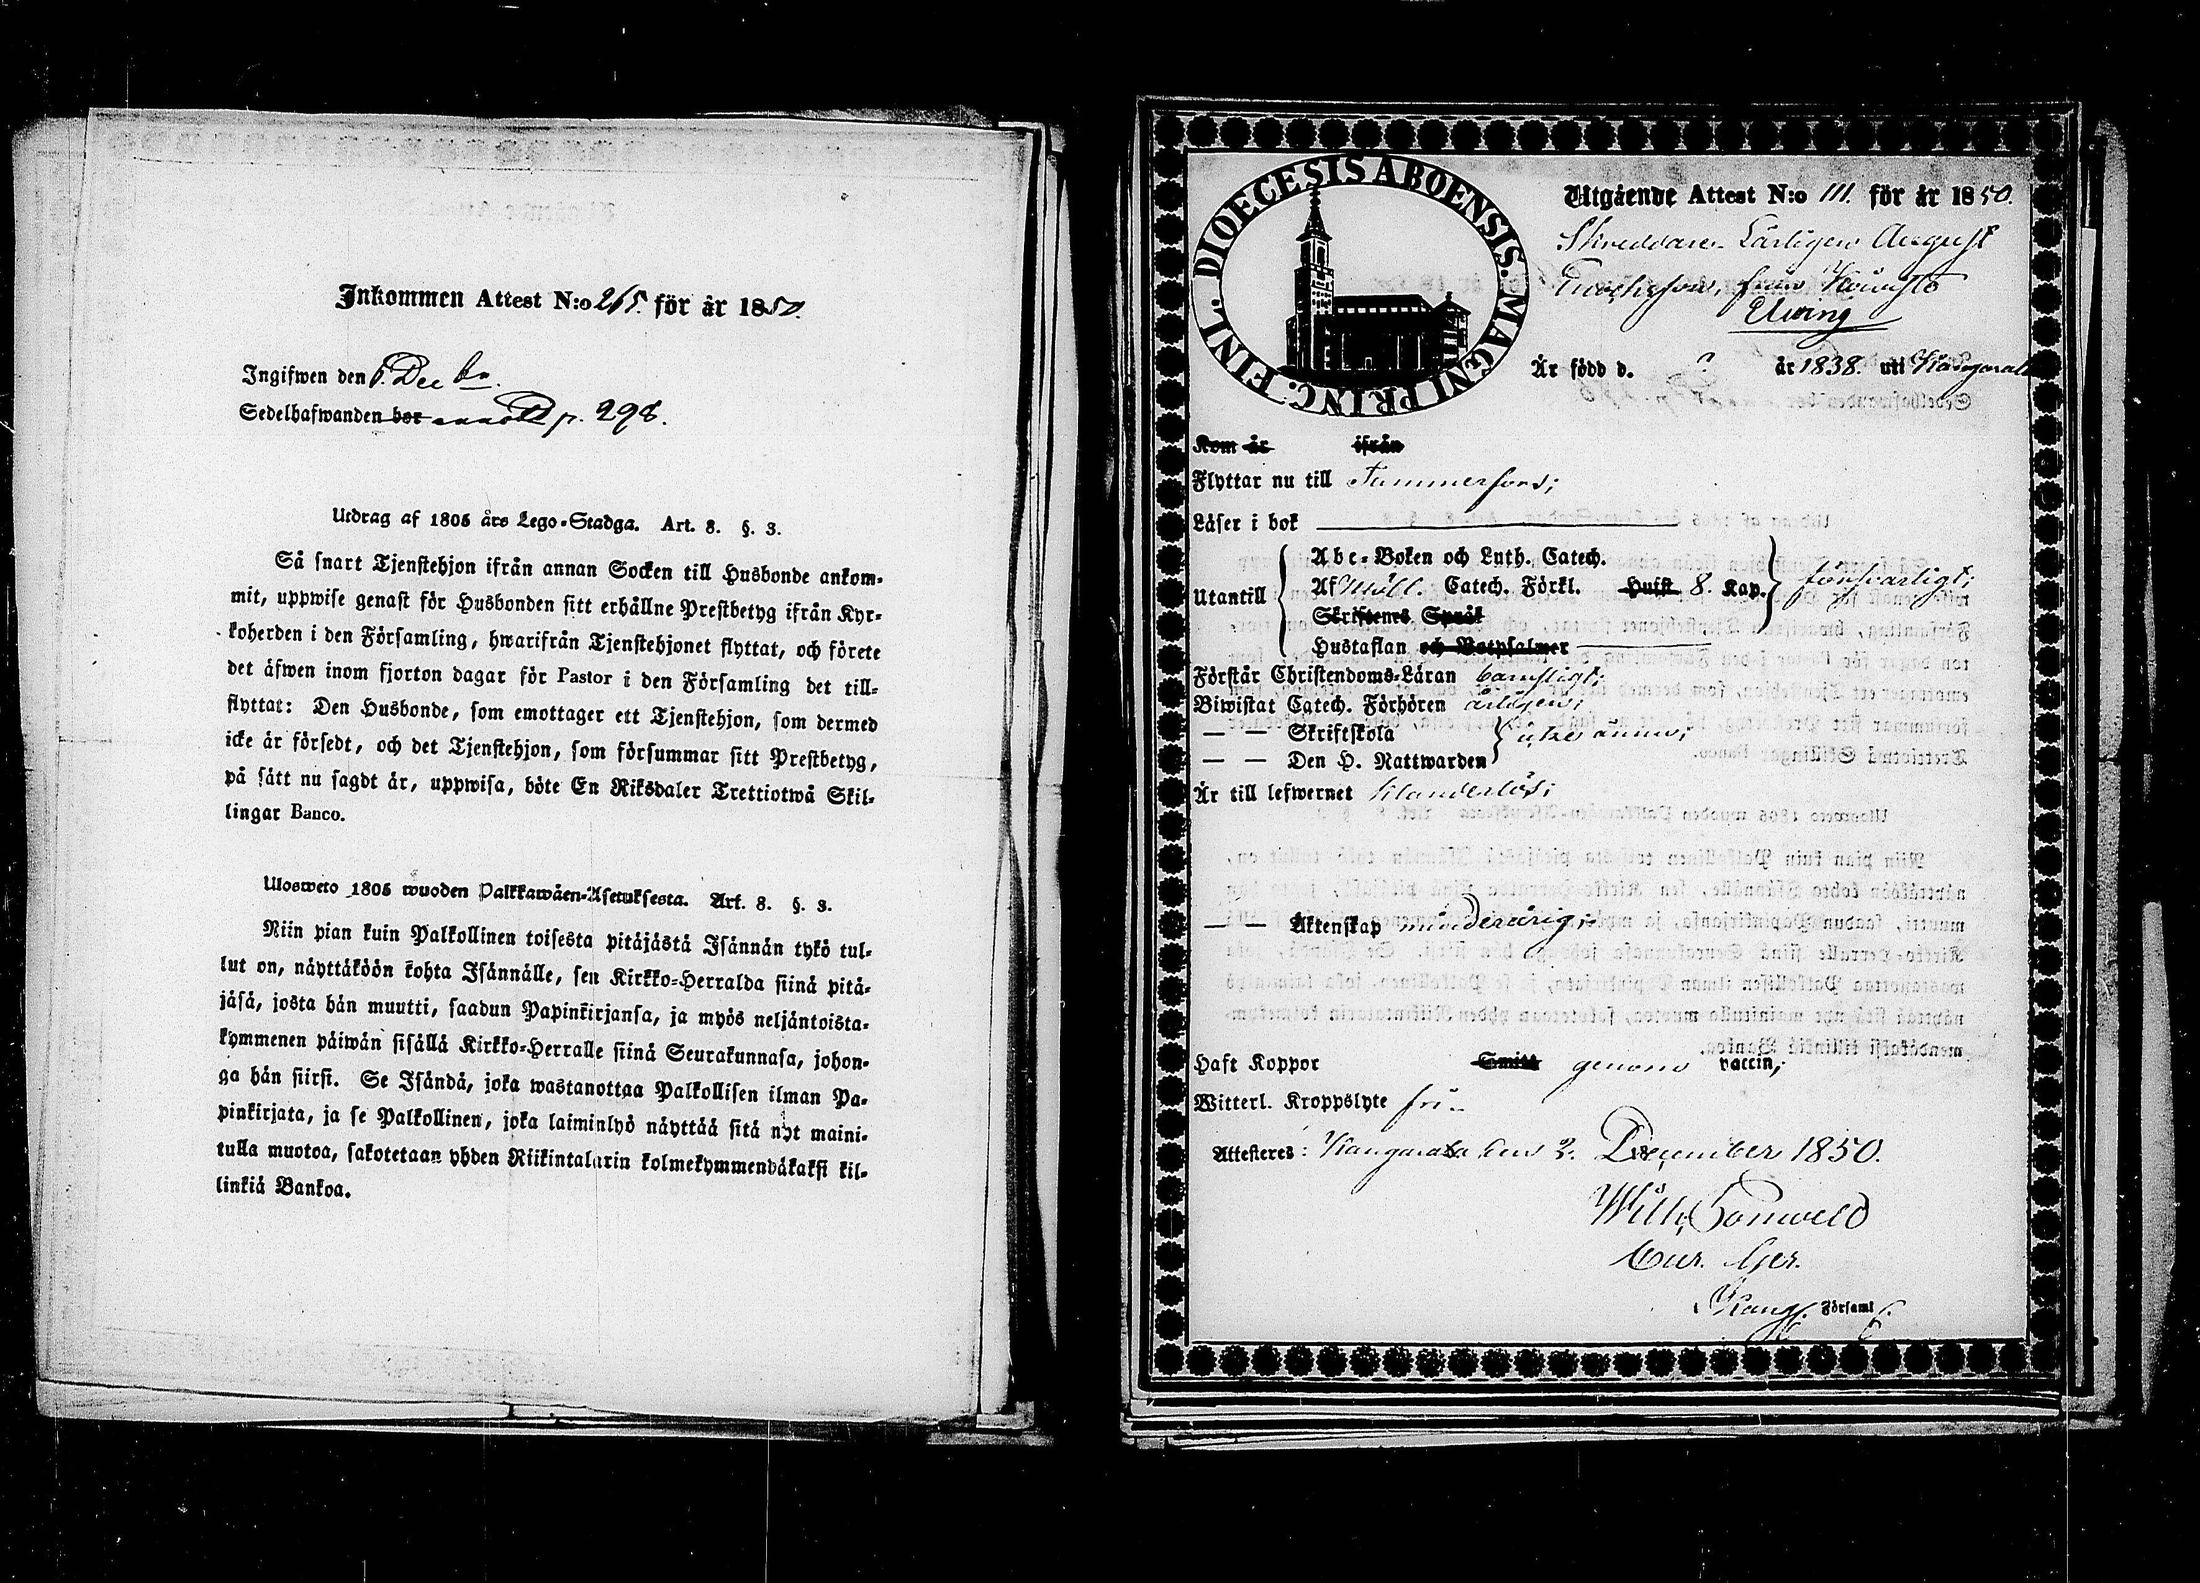 Inkommen Attest N:o 265. för år 1850.
Ingifwen den 6. Dec br.
Sedelhafwanden bor p. 298.
Utdrag af 1805 års Lego-Stadga. Art. 8. §. 3.
Så snart Tjenstehjon ifrån annan Socken till Husbonde ankom-
mit, uppwise genast för Husbonden sitt erhållne Prestbetyg ifrån Kyr-
koherden i den Församling, hwarifrån Tjenstehjonet flyttat, och förete
det äfwen inom fjorton dagar för Pastor i den Församling det till-
flyttat: Den Husbonde, som emottager ett Tjenstehjon, som dermed
icke är försedt, och det Tjenstehjon, som försummar sitt Prestbetyg,
på sätt nu sagdt är, uppwisa, böte En Riksdaler Trettiotwå Skil-
lingar Banco.
Ulosweto 1805 wuoden Palkkawäen-Asetuksesta. Art. 8. §. 3.
Niin pian kuin Palkollinen toisesta pitäjästä Isännän tykö tul-
lut on, näyttäköön kohta Isännälle, sen Kirkko-Herralda siinä pitä-
jäsä, josta hän muutti, saadun Papinkirjansa, ja myös neljäntoista-
kymmenen päiwän sisällä Kirkko-Herralle siinä Seurakunnasa, johon-
ga hän siirsi. Se Isändä, joka wastanottaa Palkollisen ilman Pa-
pinkirjata, ja se Palkollinen, joka laiminlyö näyttää sitä nyt maini-
tulla muotoa, sakotetaan yhden Riikintalarin kolmekymmendäkaksi kil-
linkiä Bankoa.
DIOECESIS ABOENSIS. MAGNI PRINC. FINL.
Utgående Attest N:o 111. för år 1850.
Skreddare Lärlingen August
Enochsson, från
Elwing
Är född d. ? år 1838. uti Kangasala
Kom år ifrån
Flyttar nu till Tammerfors;
Läser i bok
Utantill
Abc-Boken och Luth. Catech.
Af Möll. Catech. Förkl. Huist 8. Kap. försvarligt;
Skriftenes Språk
Hustaflan och Botpsalmer
Förstår Christendoms-Läran barnsligt;
Biwistat Catech. Förhören årligen;
— — Skriftskola
— — Den H. Nattwarden icke ännu;
Är till lefwernet klanderlös;
— — Äktenskap minderårig;
Haft Koppor Smitt genom vaccin;
Witterl. Kroppslyte fri.
Attesteras: Kangasala den 2. December 1850.
Wilh.
Cur. Ger.
Kang. Församl.